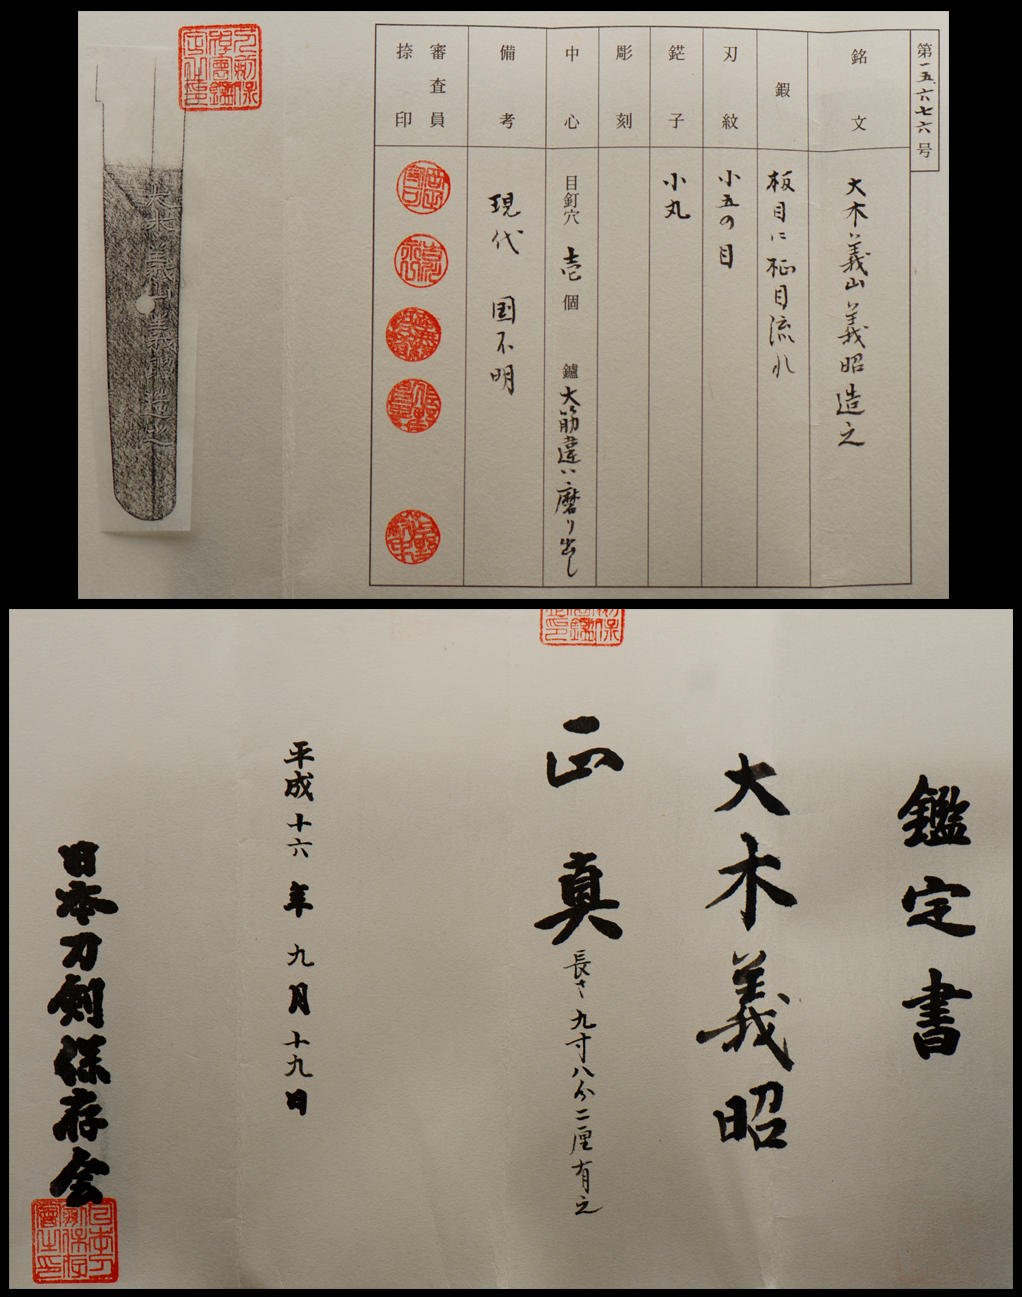 第一五、六七六号
銘文
大木義山義昭造之
鍜
板目に柾目流れ
刃紋
小五の目
鋩子
小丸
彫刻
中心
目釘穴 壱個 鑢 大筋違い磨り出し
備考
現代 国不明
審査員
捺印
鑑定書
大木義昭
正真
長さ九寸八分二厘有之
平成十六年九月十九日
日本刀剣保存会